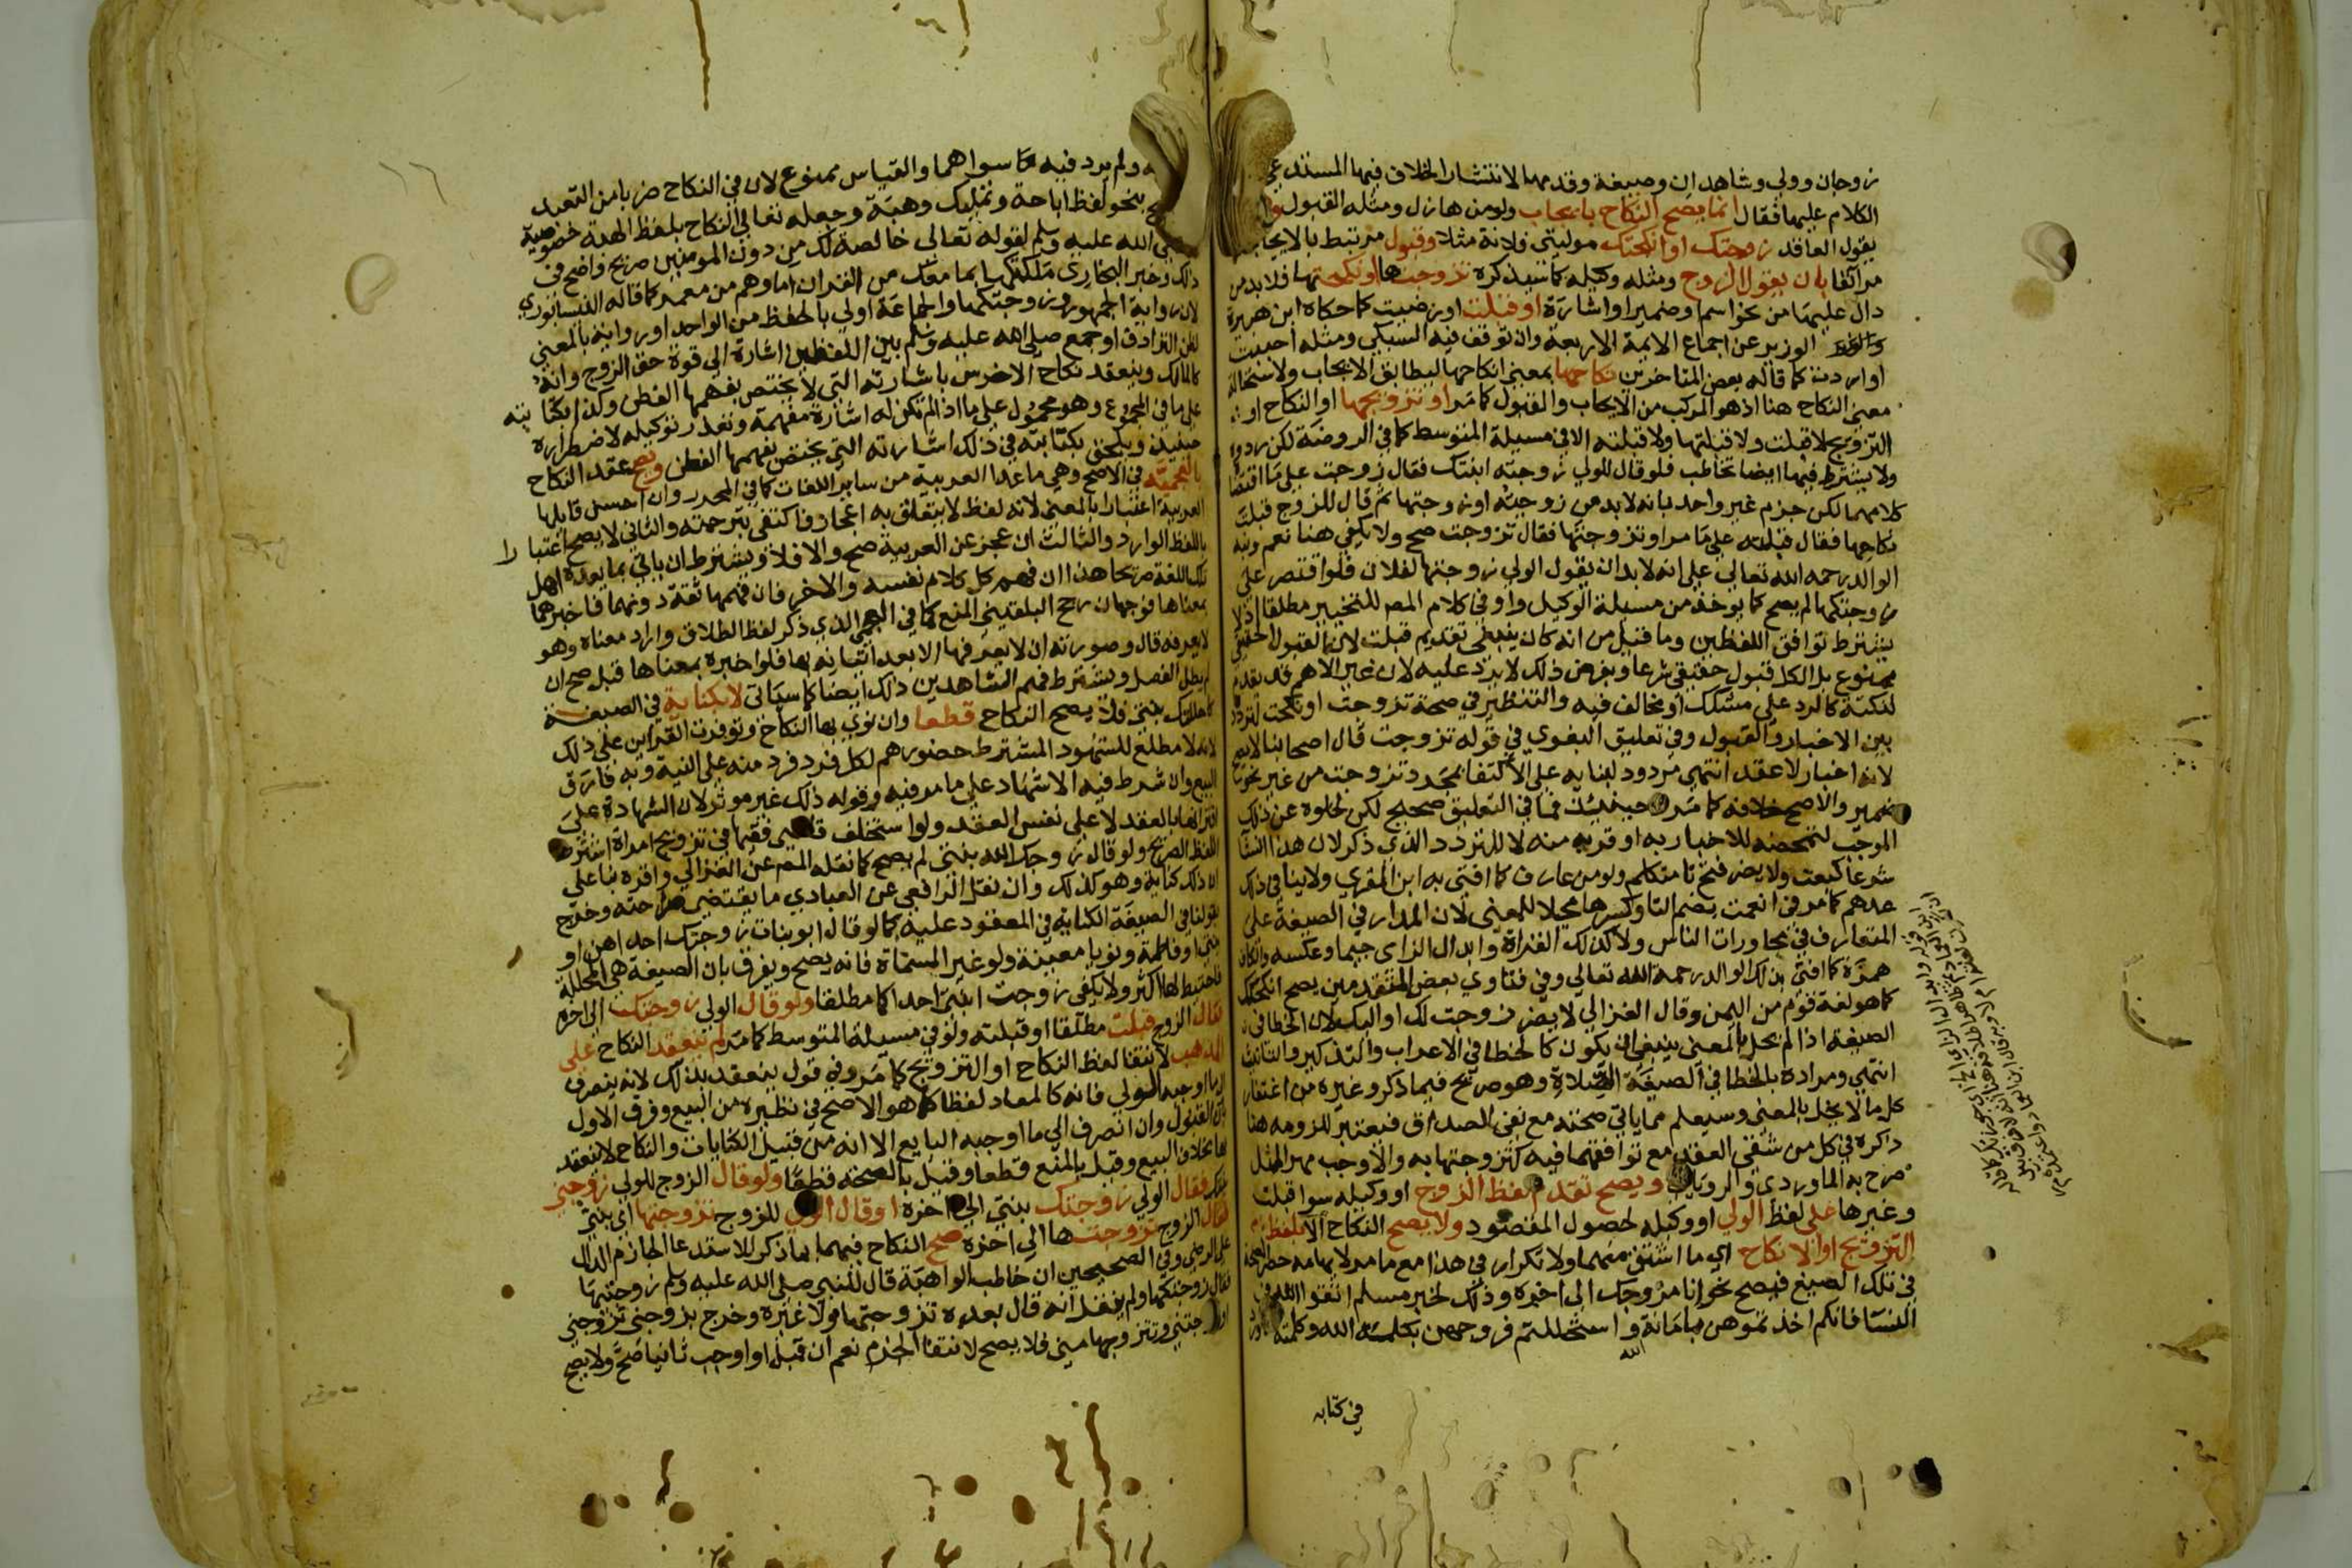 زوجان وولي وشاهدان وصيغة وقدمها لانتشار الخلاف فيها المستدعي
الكلام عليها فقال انما يصح النكاح بايجاب ولو من هازل ومثله القبول
يقول العاقد زوجتك او انكحتك موليتي فلانة مثلا وقبول مرتبط بالايجاب
مر آنفا بان يقول الزوج ومثله وكيله كما سيذكره تزوجتها او نكحتها فلا بد من
دال عليها من نحو اسم وضمير او اشارة او قبلت او رضيت كما حكاه ابن هبيرة
الوزير عن اجماع الايمة الاربعة وان توقف فيه السبكي ومثله احببت
او اردت كما قاله بعض المتاخرين نكاحها بمعنى انكاحها ليطابق الايجاب ولاستحالة
معنى النكاح هنا اذ هو المركب من الايجاب والقبول كما مر او تزويجها او النكاح او
التزويج لا قبلت ولا قبلتها ولا قبلته الا في مسيلة المتوسط كما في الروضة لكن ردوه
ولا يشترط فيها ايضا تخاطب فلو قال للولي زوجته ابنتك فقال زوجت على ما اقتضاه
كلامهما لكن جزم غير واحد بانه لا بد من زوجته او زوجتها ثم قال للزوج قبلت
نكاحها فقال قبلته على ما مر او تزوجتها فقال تزوجت صح ولا يكفي هنا نعم ونبه
الوالد رحمه الله تعالى على انه لا بد ان يقول الولي زوجتها لفلان فلو اقتصر على
زوجتكها لم يصح كما يوخذ من مسيلة الوكيل واو في كلام المص للتخيير مطلقا اذ لا
يشترط توافق اللفظين وما قيل من انه كان ينبغي تقديم قبلت لانها القبول الحقيقي
ممنوع بل الكل قبول حقيقي شرعا وبفرض ذلك لا يرد عليه لان غير الاهم قد يقدم
لنكتة كالرد على مشكك او مخالف فيه والتنظير في صحة تزوجت او نكحت لتردده
بين الاخبار والقبول وفي تعليق البغوي في قوله تزوجت قال اصحابنا لا يصح
لانه اخبار لا عقد انتهى مردود لبنايه على الاكتفا بمجرد تزوجت من غير نحو
ضمير والاصح خلافه كما مر حينيذ فما في التعليق صحيح لكن لخلوه عن ذلك
الموجب لتمحضه للاخبار به او قربه منه لا للتردد الذي ذكر لان هذا انشا
شرعا كبعت ولا يضر فتح تا متكلم ولو من عارف كما افتى به ابن المقري ولا ينافي ذلك
عدهم كما مر في انعمت بضم التا وكسرها محيلا للمعنى لان المدار في الصيغة على
المتعارف في محاورات الناس ولا كذلك القراة وابدال الزاي جيما وعكسه والكاف
همزة كما افتى بذلك الوالد رحمه الله تعالى وفي فتاوي بعض المتقدمين يصح انكحتك
كما هو لغة قوم من اليمن وقال الغزالي لا يضر زوجت لك او اليك لان الخطا في
الصيغة اذا لم يخل بالمعنى ينبغي ان يكون كالخطا في الاعراب والتذكير والتانيث
انتهى ومراده بالخطا في الصيغة الصلاة وهو صريح فيما ذكر وغيره من اغتفار
كل ما لا يخل بالمعنى وسيعلم مما ياتي صحته مع نفي الصداق فيعتبر للزومه هنا
ذكره في كل من شقي العقد مع توافقهما فيه كتزوجتها به والا وجب مهر المثل
صرح به الماوردي والروياني ويصح تقدم لفظ الزوج او وكيله سوا قبلت
وغيرها على لفظ الولي او وكيله لحصول المقصود ولا يصح النكاح الا بلفظ
التزويج او الانكاح اي ما اشتق منهما ولا تكرار في هذا مع ما مر لايهامه حصر الصحة
في تلك الصيغ فيصح نحو انا مزوجك الى اخره وذلك لخبر مسلم اتقوا الله في
النسا فانكم اخذتموهن بامانة واستحللتم فروجهن بكلمة الله وكلمته
الله
في كتابه
ولم يرد فيه سواهما والقياس ممنوع لان في النكاح ضربا من التعبد
بنحو لفظ اباحة وتمليك وهبة وجعله تعالى النكاح بلفظ الهبة خصوصية
صلى الله عليه وسلم لقوله تعالى خالصة لك من دون المومنين صريح واضح في
ذلك وخبر البخاري ملكتكها بما معك من القران اما وهم من معمر كما قاله النيسابوري
لان رواية الجمهور زوجتكها والجماعة اولى بالحفظ من الواحد او رواية بالمعنى
لظن الترادف او جمع صلى الله عليه وسلم بين اللفظين اشارة الى قوة حق الزوج وانه
كالمالك وينعقد نكاح الاخرس باشارته التي لا يختص بفهمها الفطن وكذا بكتابته
على ما في المجموع وهو محمول على ما اذا لم تكن له اشارة مفهمة وتعذر توكيله لاضطراره
حينيذ ويلحق بكتابته في ذلك اشارته التي يختص بفهمها الفطن ويصح عقد النكاح
بالعجمية في الاصح وهي ما عدا العربية من ساير اللغات كما في المحرر وان احسن قايلها
العربية اعتبارا بالمعنى لانه لفظ لا يتعلق به اعجاز فاكتفى بترجمته والثاني لا يصح اعتبارا
باللفظ الوارد والثالث ان عجز عن العربية صح والا فلا ويشترط ان ياتي بما يعده اهل
تلك اللغة صريحا هذا ان فهم كل كلام نفسه والاخر فان فهمها ثقة دونهما فاخبرهما
بمعناها فوجهان رجح البلقيني المنع كما في العجمي الذي ذكر لفظ الطلاق واراد معناه وهو
لا يعرفه قال وصورته ان لا يعرفها الا بعد اتيانه بها فلو اخبره بمعناها قبل صح ان
لم يطل الفصل ويشترط فهم الشاهدين ذلك ايضا كما سياتي لا بكناية في الصيغة
كاحللتك بنتي فلا يصح النكاح قطعا وان نوى بها النكاح وتوفرت القراين على ذلك
لانه لا مطلع للشهود المشترط حضورهم لكل فرد فرد منه على النية وبه فارق
البيع وان شرط فيه الاشهاد على ما مر فيه وقوله ذلك غير موثر لان الشهادة على
اقترانها بالعقد لا على نفس العقد ولو استخلف قاضي فقيها في تزويج امراة اشترط
اللفظ الصريح ولو قال زوجك الله بنتي لم يصح كما نقله المص عن الغزالي واقره بنا على
ان ذلك كناية وهو كذلك وان نقل الرافعي عن العبادي ما يقتضي صراحته وخرج
بقولنا في الصيغة الكناية في المعقود عليه كما لو قال ابو بنات زوجتك احداهن او
بنتي او فاطمة ونويا معينة ولو غير المسماة فانه يصح ويفرق بان الصيغة هي المحللة
فاحتيط لها اكثر ولا يكفي زوجت ابنتي احدا كما مطلقا ولو قال الولي زوجتك الى اخره
فقال الزوج قبلت مطلقا او قبلته ولو في مسيلة المتوسط كما مر لم ينعقد النكاح على
المذهب لانتفا لفظ النكاح او التزويج كما مر وفي قول ينعقد بذلك لانه ينصرف
الى ما اوجبه الولي فانه كالمعاد لفظا كما هو الاصح في نظيره من البيع وفرق الاول
بان القبول وان انصرف الى ما اوجبه البايع الا انه من قبيل الكنايات والنكاح لا ينعقد
بها بخلاف البيع وقيل بالمنع قطعا وقيل بالصحة قطعا ولو قال الزوج للولي زوجني
فقال الولي زوجتك بنتي الى اخره او قال الولي للزوج تزوجها اي بنتي
فقال الزوج تزوجتها الى اخره صح النكاح فيهما بما ذكر للاستدعا الجازم الدال
على الرضى وفي الصحيحين ان خاطب الواهبة قال للنبي صلى الله عليه وسلم زوجنيها
فقال زوجتكها ولم ينقل انه قال بعده تزوجتها ولا غيره وخرج بزوجني تزوجني
وتتزوجها مني فلا يصح لانتفا الجزم نعم ان قبل او اوجب ثانيا صح ولا يصح